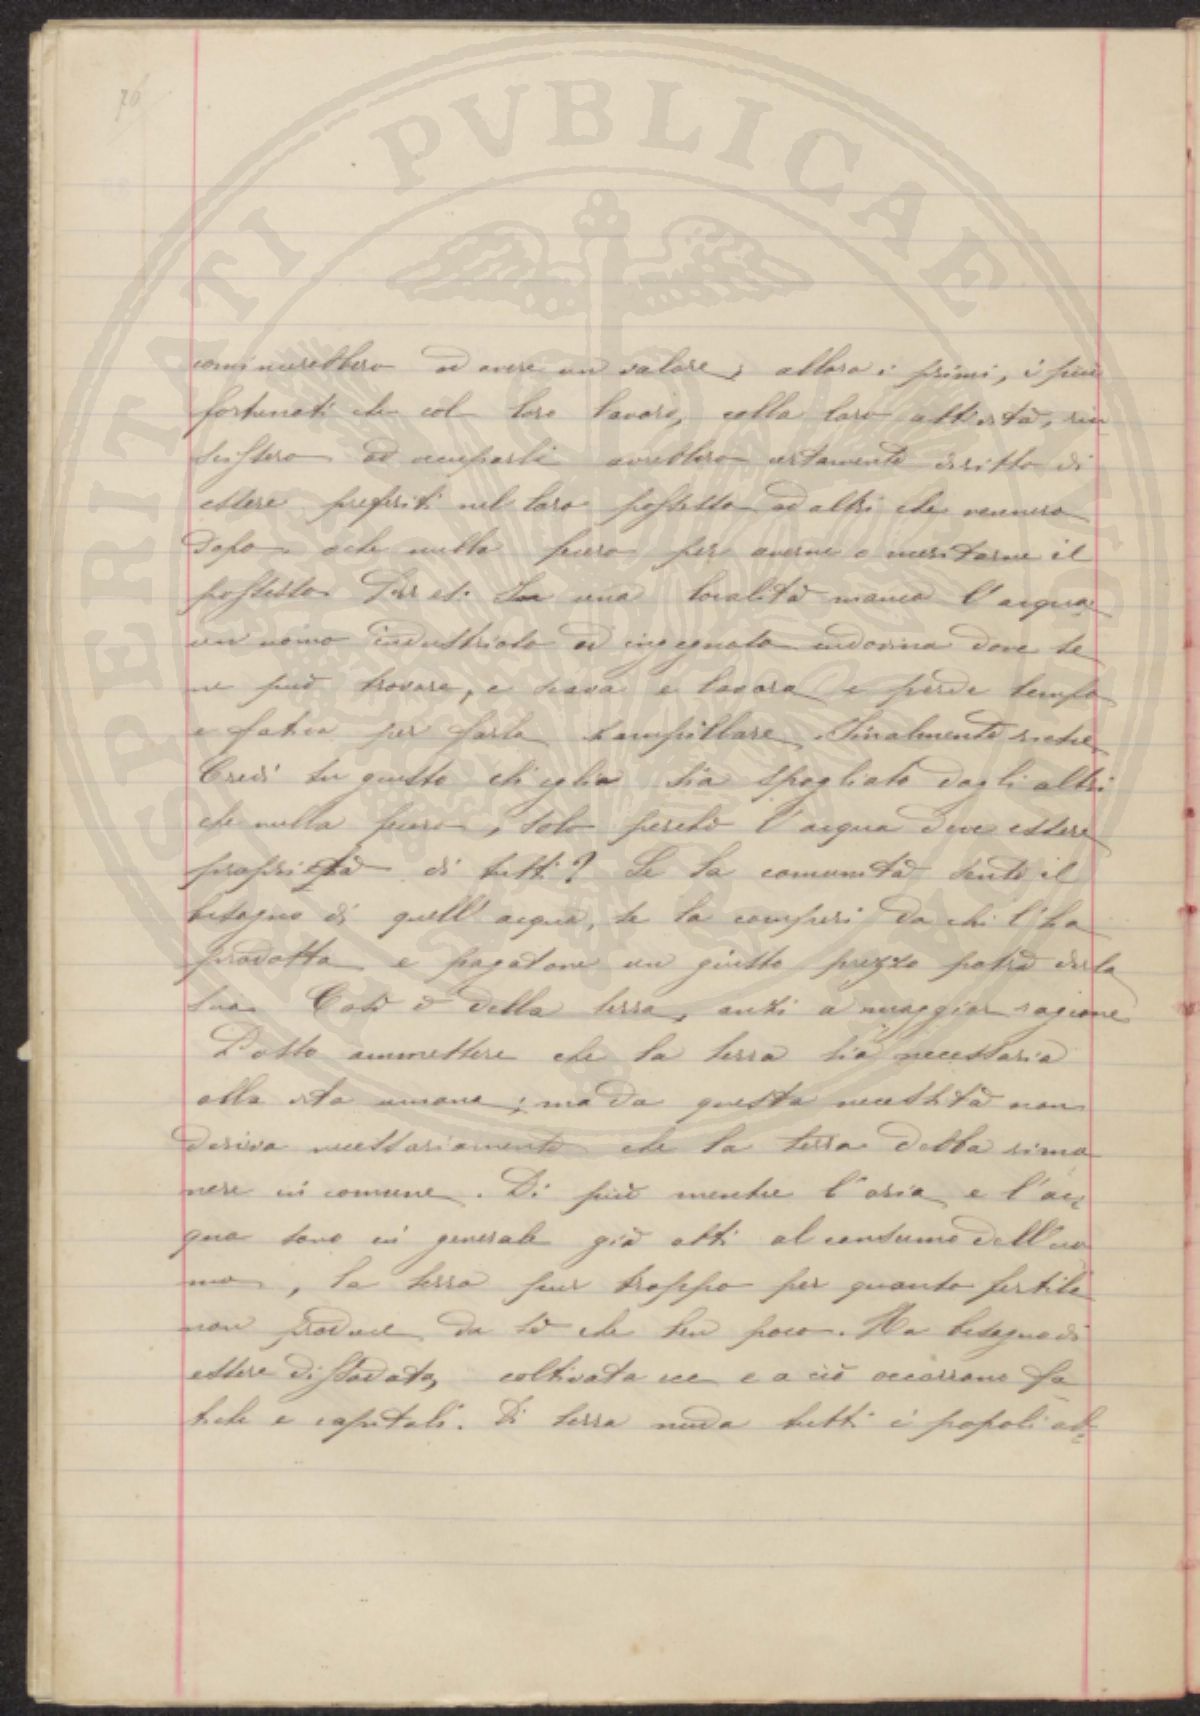 70
PROSPERITATI PVBLICAE
comincerebbero ad avere un valore; allora i primi, i più
fortunati che col loro lavoro, colla loro attività, riu
scissero ad occuparli avrebbero certamente diritto di
essere preferiti nel loro possesso ad altri che vennero
dopo e che nulla fecero per averne o meritarne il
possesso. Per es. In una località manca l'acqua,
un uomo industrioso ed ingegnoso indovina dove se
ne può trovare, e scava e lavora e perde tempo
e fatica per farla zampillare. Finalmente riesce
Credi tu giusto ch'egli sia spogliato dagli altri
che nulla fecero, solo perchè l'acqua deve essere
proprietà di tutti? Se la comunità sente il
bisogno di quell'acqua, se la comperi da chi l'ha
prodotta e pagatone un giusto prezzo potrà dirla
sua. Così è della terra, anzi a maggior ragione
Posso ammettere che la terra sia necessaria
alla vita umana; ma da questa necessità non
deriva necessariamente che la terra debba rima
nere in comune. Di più mentre l'aria e l'ac,
qua sono in generale già atti al consumo dell'uo
mo, la terra pur troppo per quanto fertile
non produce da sè che ben poco. Ha bisogno di
essere dissodata, coltivata ecc e a ciò occorrono fa
tiche e capitali. Di terra nuda tutti i popoli ab,